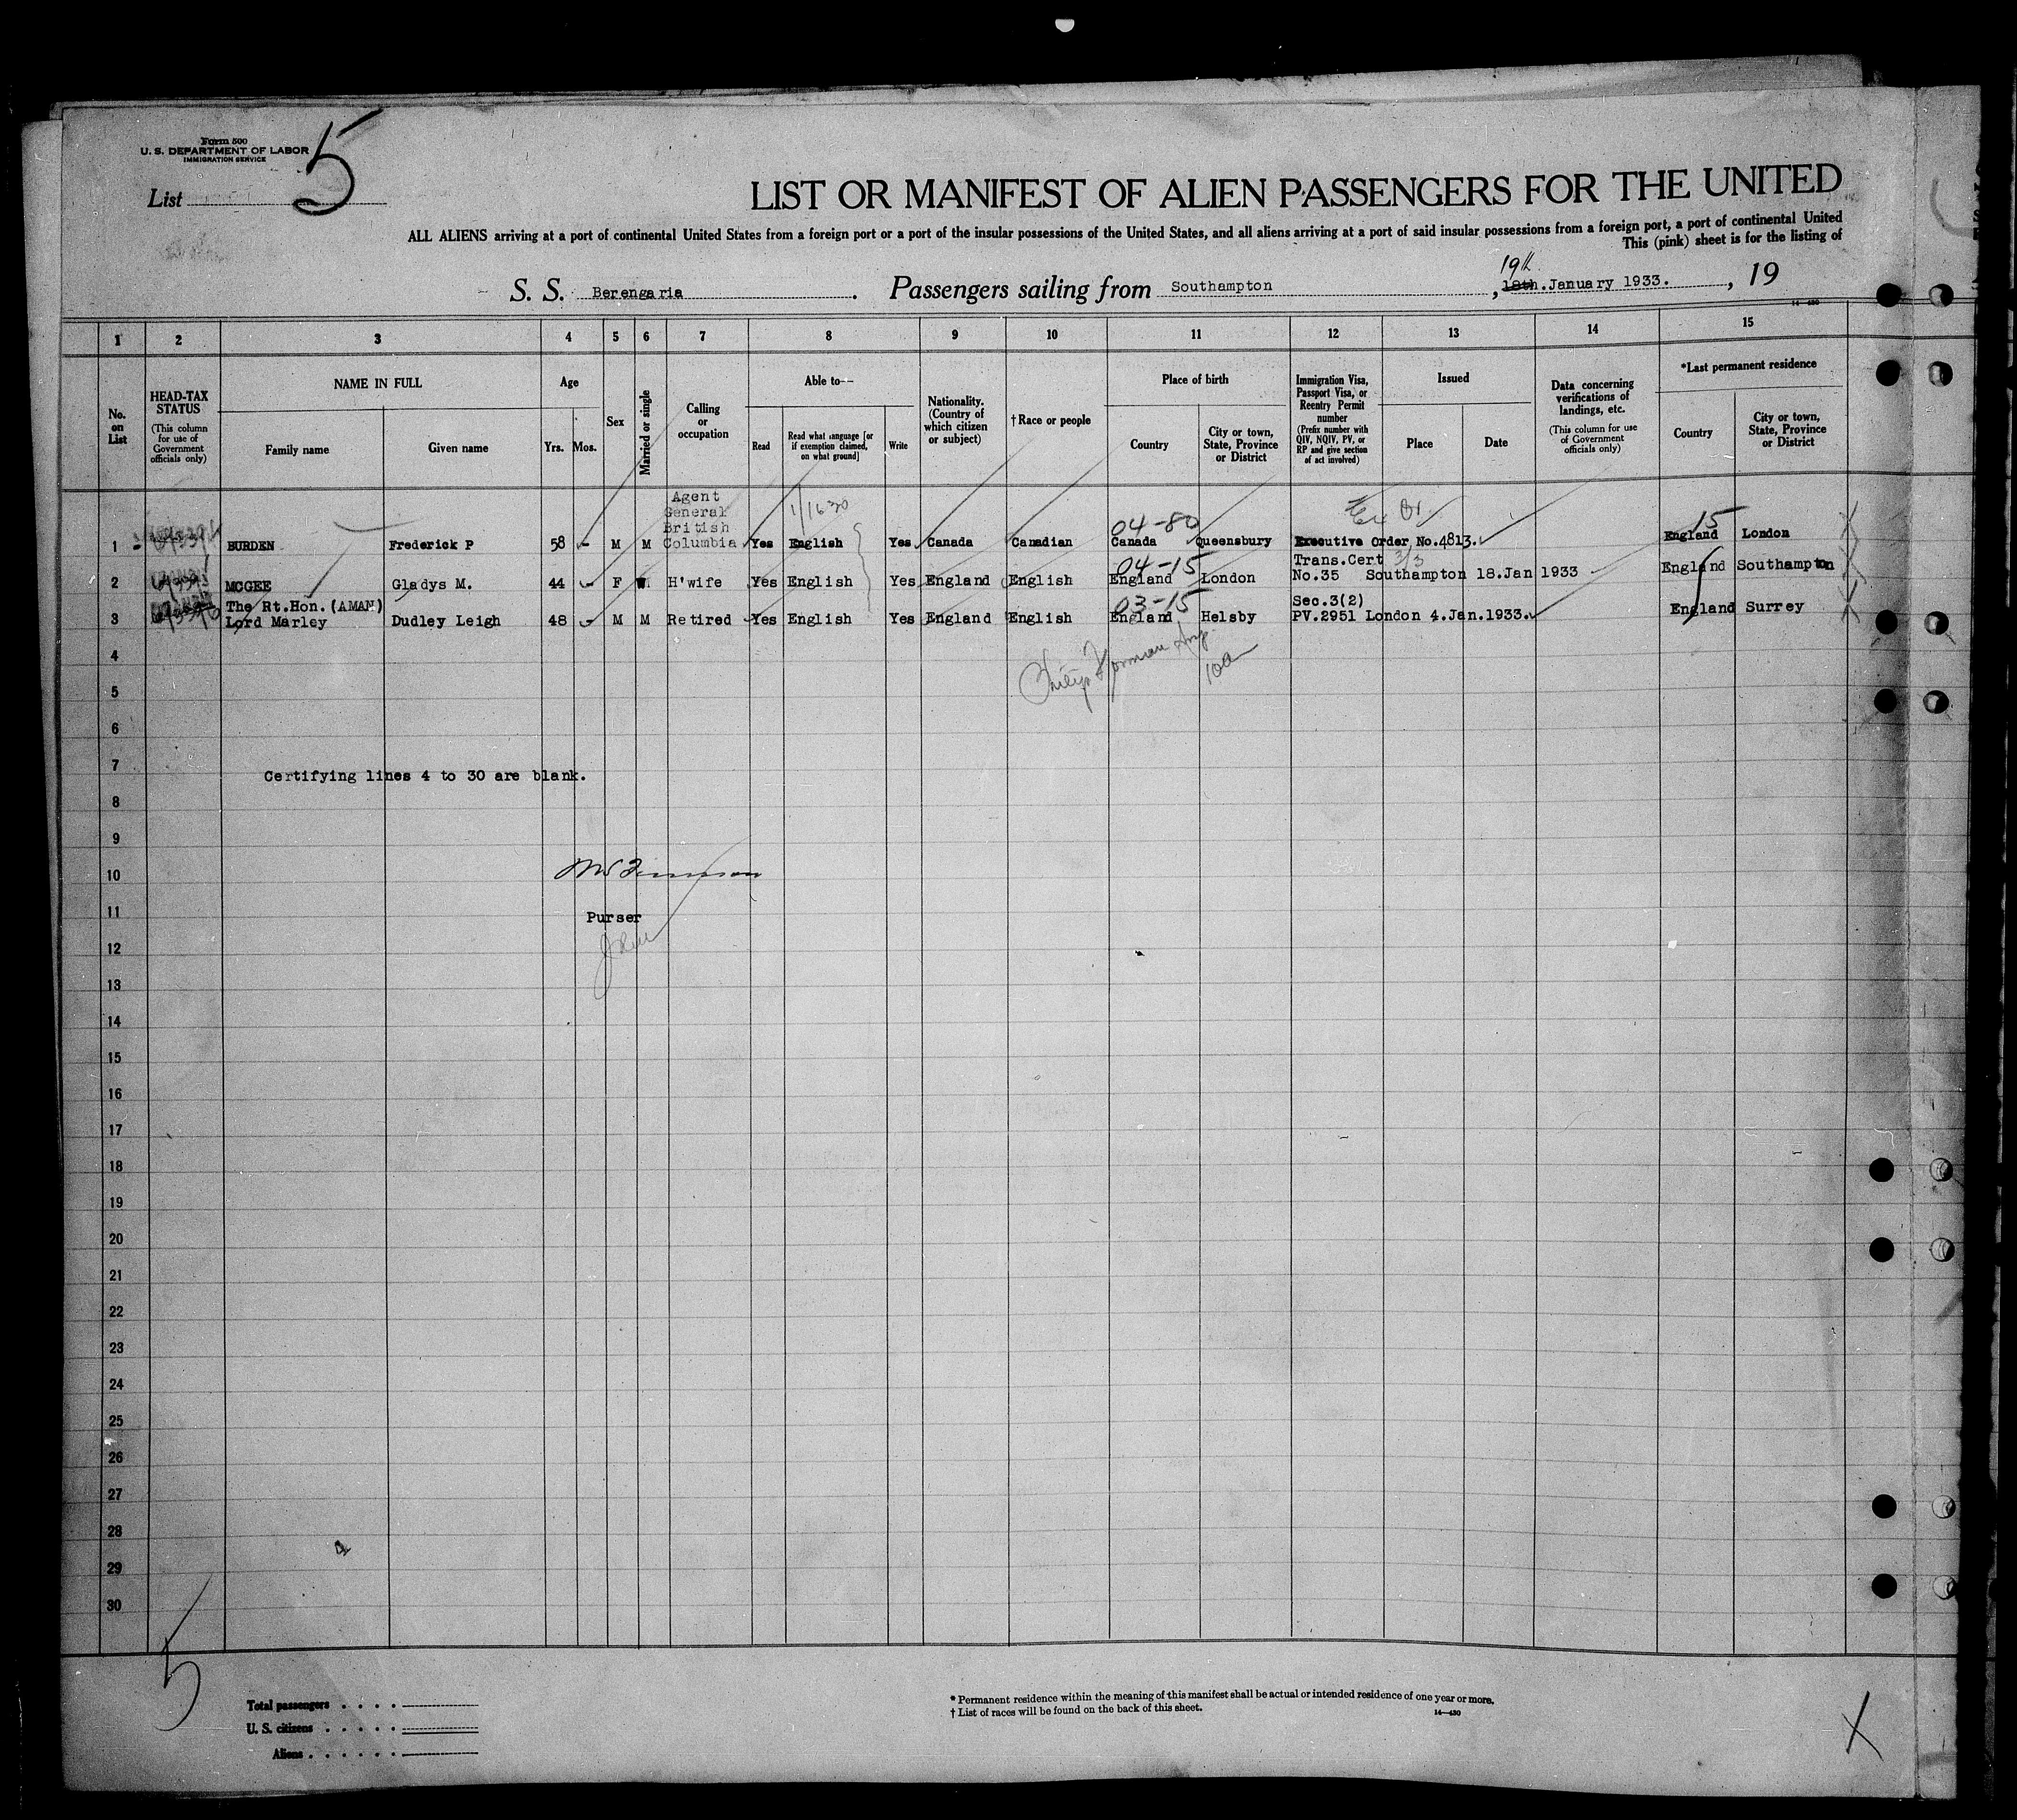 Form 500
U. S. DEPARTMENT OF LABOR
IMMIGRATION SERVICE
5
List
LIST OR MANIFEST OF ALIEN PASSENGERS FOR THE UNITED
ALL ALIENS arriving at a port of continental United States from a foreign port or a port of the insular possessions of the United States, and all aliens arriving at a port of said insular possessions from a foreign port, a port of continental United
This (pink) sheet is for the listing of
19th
S. S. Berengaria. Passengers sailing from Southampton, 18th.January 1933., 19
14—430
1 2 3 4 5 6 7 8 9 10 11 12 13 14 15
No. on List
HEAD-TAX STATUS (This column for use of Government officials only)
NAME IN FULL
Family name
Given name
Age
Yrs. Mos.
Sex
Married or single
Calling or occupation
Able to—
Read
Read what language [or if exemption claimed, on what ground]
Write
Nationality. (Country of which citizen or subject)
†Race or people
Place of birth
Country
City or town, State, Province or District
Immigration Visa, Passport Visa, or Reentry Permit number (Prefix number with QIV, NQIV, PV, or RP and give section of act involved)
Issued
Place
Date
Data concerning verifications of landings, etc. (This column for use of Government officials only)
*Last permanent residence
Country
City or town, State, Province or District
Agent
General
British
04-80
15
1 BURDEN Frederick P 58 - M M Columbia Yes English Yes Canada Canadian Canada Queensbury Executive Order No.4813. England London
04-15
Trans.Cert 3/3
2 MCGEE Gladys M. 44 F H'wife Yes English Yes England English England London No.35 Southampton 18.Jan 1933 England Southampton
The Rt.Hon. (AMAN)
03-15
Sec.3(2)
3 Lord Marley Dudley Leigh 48 M M Retired Yes English Yes England English England Helsby PV.2951 London 4.Jan.1933. England Surrey
4
5
6
7
Certifying lines 4 to 30 are blank.
8
9
10
11
Purser
12
13
14
15
16
17
18
19
20
21
22
23
24
25
26
27
28
29
30
5
Total passengers
U. S. citizens
Aliens
* Permanent residence within the meaning of this manifest shall be actual or intended residence of one year or more.
† List of races will be found on the back of this sheet.
14—430
X